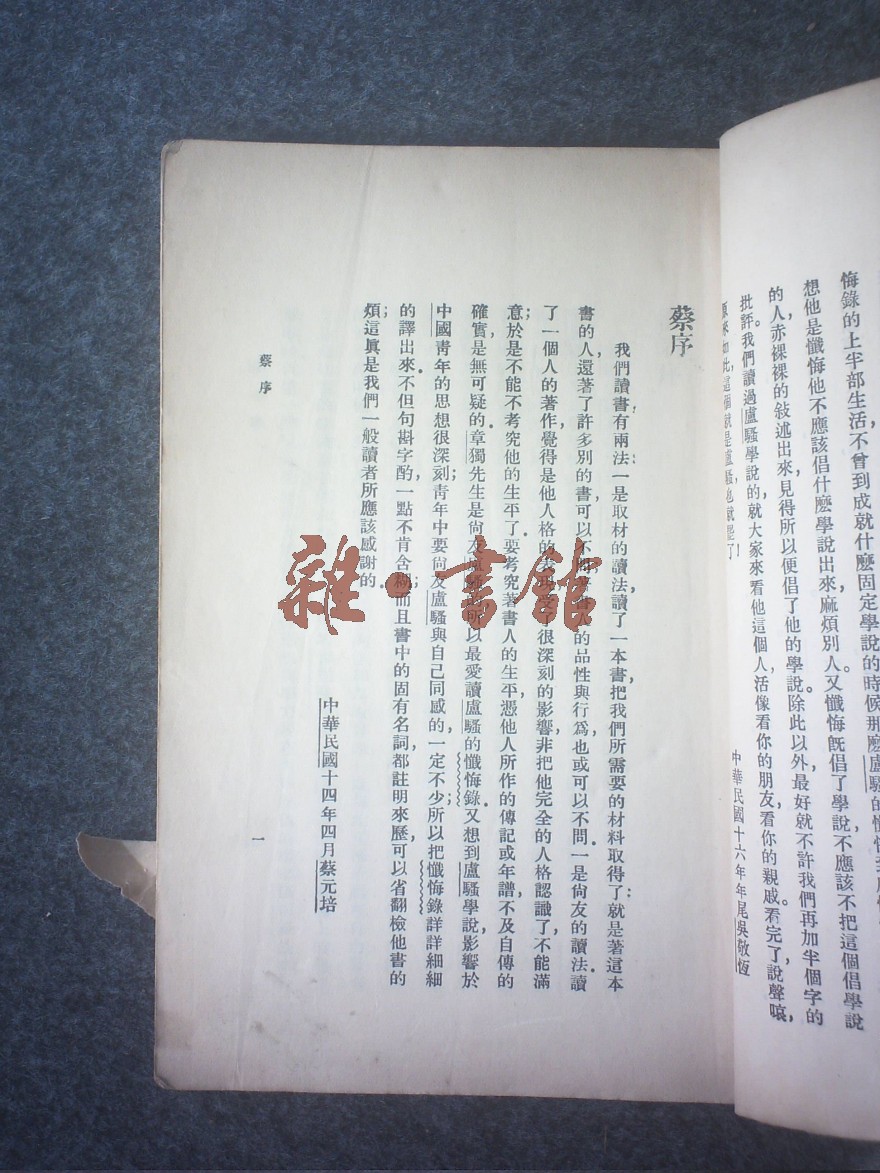 悔錄的上半部生活不曾到成就什麼固定學說的時候那麼盧騷的懺悔
想他是懺悔他不應該倡什麼學說出來麻煩別人。又懺悔既倡了學說不應該不把這個倡學說
的人赤裸裸的敍述出來，見得所以便倡了他的學說除此以外，最好就不許我們再加半個字的
批評。我們讀過盧騷學說的，就大家來看他這個人活像看你的朋友，看你的親戚。看完了說聲
原來如此，這個就是盧騷，也就罷了！
中華民國十六年年尾吳敬恆
蔡序
我們讀書有兩法：一是取材的讀法，讀了一本書，把我們所需要的材料取得了；就是著這本
書的人，還著了許多別的書，可以不問；著書人的品性與行爲，也或可以不問。一是尙友的讀法，讀
了一個人的著作，覺得是他人格的表現，受了很深刻的影響，非把他完全的人格認識了，不能滿
意；於是不能不考究他的生平了。要考究著書人的生平，憑他人所作的傳記或年譜，不及自傳的
確實，是無可疑的。章獨先生是尙友盧騷的，所以最愛讀盧騷的懺悔錄。又想到盧騷學說，影響於
中國靑年的思想很深刻；靑年中要尙友盧騷與自己同感的一定不少；所以把懺悔錄詳詳細細
的譯出來，不但句斟字酌，一點不肯含糊；而且書中的固有名詞，都註明來歷，可以省翻檢他書的
煩；這眞是我們一般讀者所應該感謝的。
中華民國十四年四月蔡元培
蔡序
一
雜·書館